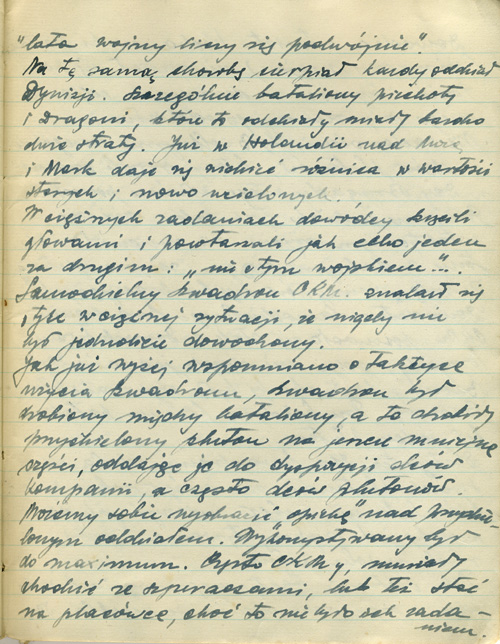 "lata wojny liczy się podwójnie".
Na tę samą chorobę cierpiał każdy oddział
Dywizji. Szczególnie bataliony piechoty
i Dragoni, które to oddziały miały bardzo
duże straty. Już w Holandii nad
i Mark daje się widzieć różnica w wartości
starych i nowo wcielonych.
W ciężkich zadaniach dowódcy kręcili
głowami i powtarzali jak echo jeden
za drugim: „nie z tym wojskiem"...
Samodzielny Szwadron C.K.M. znalazł się
o tyle w ciężkiej sytuacji, że nigdy nie
był jednolicie dowodzony.
Jak już wyżej wspomniano o taktyce
użycia Szwadronu, Szwadron był
drobiony między bataliony, a to drobiły
przydzielony pluton na jeszcze mniejsze
części, oddając je do dyspozycji dców
kompanii, a często dców plutonów.
Możemy sobie wyobrazić „opiekę" nad przydzie-
lonym oddziałem. Wykorzystywany był
do maximum. Często CKMy, musiały
chodzić ze szperaczami, lub też stać
na placówce, choć to nie było ich zada-
niem.